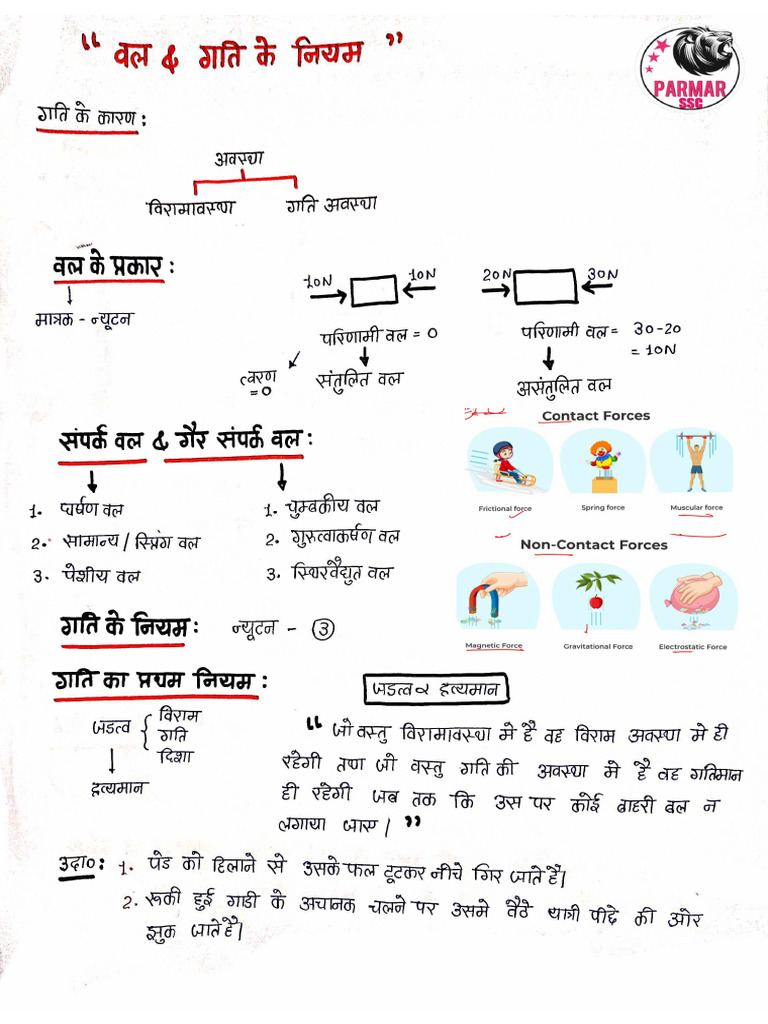 “ वल & गति के नियम ”
PARMAR
SSC
गति के कारण :
अवस्था
विरामावस्था गति अवस्था
वल के प्रकार :
मात्रक - न्यूटन
10N 10N
20N 30N
परिणामी वल = 0
परिणामी वल = 30-20
= 10N
त्वरण
= 0
संतुलित वल
असंतुलित वल
संपर्क वल & गैर संपर्क वल :
1. घर्षण वल
2. सामान्य / स्प्रिंग वल
3. पेशीय वल
1. चुम्बकीय वल
2. गुरुत्वाकर्षण वल
3. स्थिरवैद्युत वल
Contact Forces
Frictional force Spring force Muscular force
Non-Contact Forces
Magnetic Force Gravitational Force Electrostatic Force
गति के नियम : न्यूटन - 3
गति का प्रथम नियम :
जडत्व ∝ द्रव्यमान
जडत्व { विराम
गति
दिशा
द्रव्यमान
“ जो वस्तु विरामावस्था मे है वह विराम अवस्था मे ही
रहेगी तथा जो वस्तु गति की अवस्था मे है वह गतिमान
ही रहेगी जब तक कि उस पर कोई बाहरी बल न
लगाया जाए। ”
उदा० : 1. पेड को हिलाने से उसके फल टूटकर नीचे गिर जाते है।
2. रूकी हुई गाडी के अचानक चलने पर उसमे वैठे यात्री पीछे की ओर
झुक जाते है।